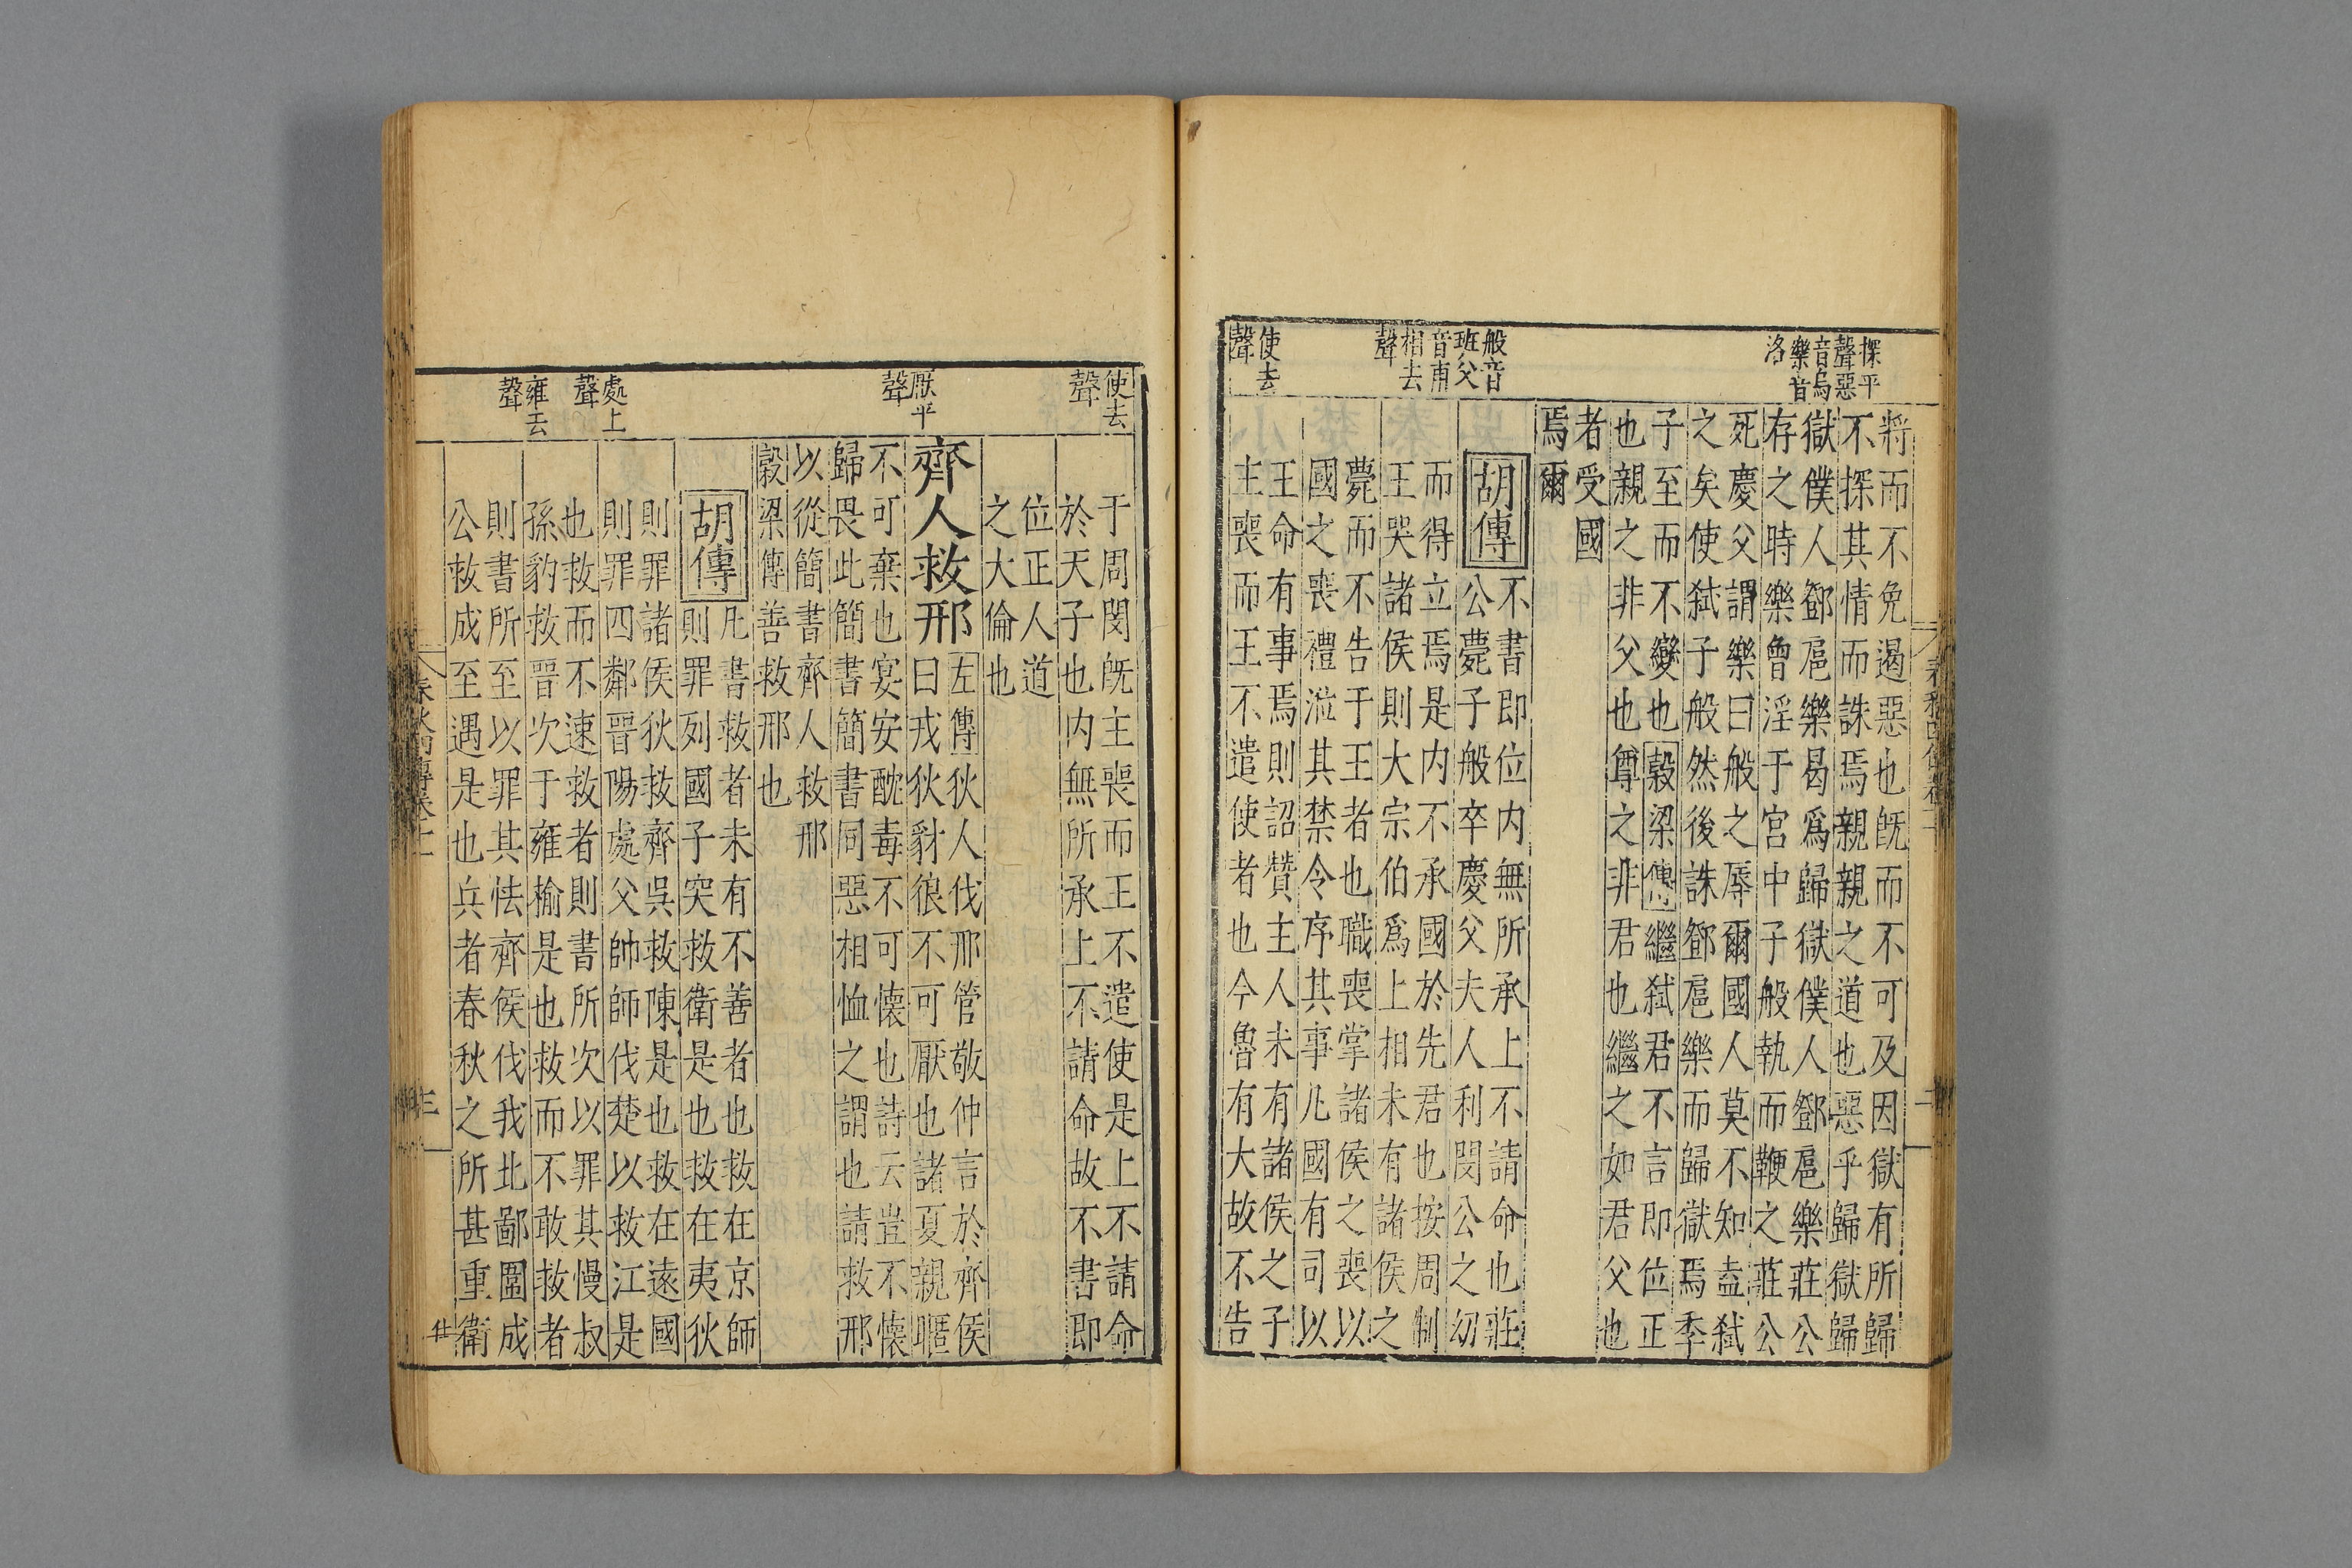 探平
聲惡
音烏
樂音
洛
般音
班父
音甫
相去
聲
使去
聲
將而不免遏惡也既而不可及因獄有所歸
不探其情而誅焉親親之道也惡乎歸獄歸
獄僕人鄧扈樂曷為歸獄僕人鄧扈樂莊公
存之時樂曾淫于宮中子般執而鞭之莊公
死慶父謂樂曰般之辱爾國人莫不知盍弒
之矣使弒子般然後誅鄧扈樂而歸獄焉季
子至而不變也穀梁傳繼弒君不言即位正
也親之非父也尊之非君也繼之如君父也
者受國
焉爾
胡傳
不書即位內無所承上不請命也莊
公薨子般卒慶父夫人利閔公之幼
而得立焉是內不承國於先君也按周制
王哭諸侯則大宗伯為上相未有諸侯之
薨而不告于王者也職喪掌諸侯之喪以
國之喪禮涖其禁令序其事凡國有司以
王命有事焉則詔贊主人未有諸侯之子
主喪而王不遣使者也今魯有大故不告
春秋四傳卷十
二
使去
聲
厭平
聲
處上
聲
雍去
聲
于周閔既主喪而王不遣使是上不請命
於天子也內無所承上不請命故不書即
位正人道
之大倫也
齊人救邢
左傳狄人伐邢管敬仲言於齊侯
曰戎狄豺狼不可厭也諸夏親暱
不可棄也宴安酖毒不可懷也詩云豈不懷
歸畏此簡書簡書同惡相恤之謂也請救邢
以從簡書齊人救邢
穀梁傳善救邢也
胡傳
凡書救者未有不善者也救在京師
則罪列國子突救衛是也救在夷狄
則罪諸侯狄救齊吳救陳是也救在遠國
則罪四鄰晉陽處父帥師伐楚以救江是
也救而不速救者則書所次以罪其慢叔
孫豹救晉次于雍榆是也救而不敢救者
則書所至以罪其怯齊侯伐我北鄙圍成
公救成至遇是也兵者春秋之所甚重衛
春秋四傳卷十
三